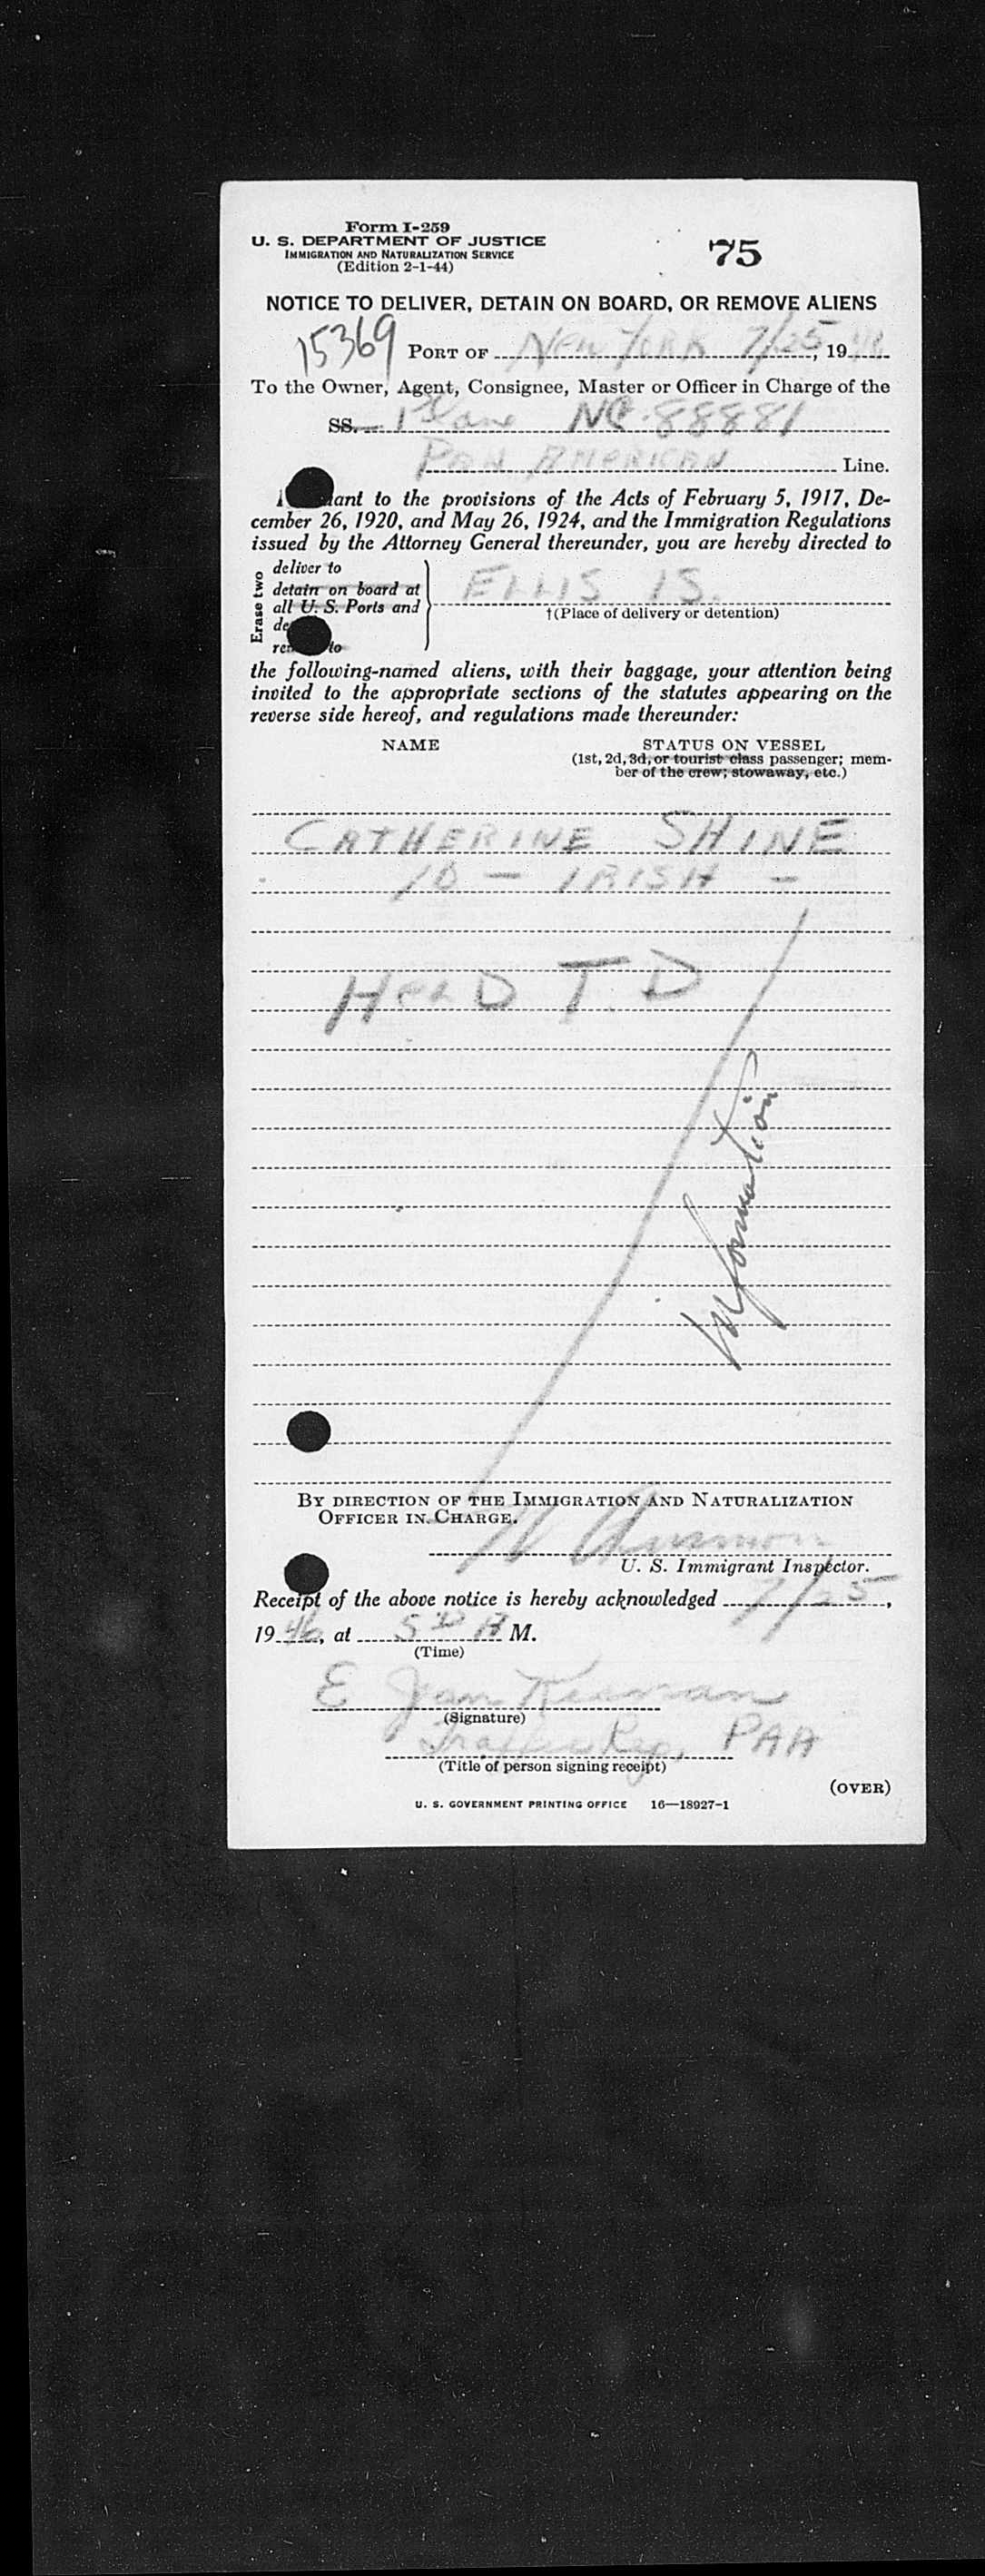 Form I-259
U. S. DEPARTMENT OF JUSTICE
IMMIGRATION AND NATURALIZATION SERVICE
(Edition 2-1-44)
75
NOTICE TO DELIVER, DETAIN ON BOARD, OR REMOVE ALIENS
15369
PORT OF NEW YORK 7/25, 1946
To the Owner, Agent, Consignee, Master or Officer in Charge of the
SS. Plane NC 88881
PAN AMERICAN Line.
ant to the provisions of the Acts of February 5, 1917, De-
cember 26, 1920, and May 26, 1924, and the Immigration Regulations
issued by the Attorney General thereunder, you are hereby directed to
Erase two
deliver to
detain on board at
all U. S. Ports and
de
re to
ELLIS IS.
†(Place of delivery or detention)
the following-named aliens, with their baggage, your attention being
invited to the appropriate sections of the statutes appearing on the
reverse side hereof, and regulations made thereunder:
NAME
STATUS ON VESSEL
(1st, 2d, 3d, or tourist class passenger; mem-
ber of the crew; stowaway, etc.)
CATHERINE SHINE
10 - IRISH -
HELD T. D
Information
BY DIRECTION OF THE IMMIGRATION AND NATURALIZATION
OFFICER IN CHARGE.
U. S. Immigrant Inspector.
Receipt of the above notice is hereby acknowledged 7/25,
1946, at 5 A M.
(Time)
E Jean Keenan
(Signature)
Traffic Rep, PAA
(Title of person signing receipt)
(OVER)
U. S. GOVERNMENT PRINTING OFFICE 16—18927-1